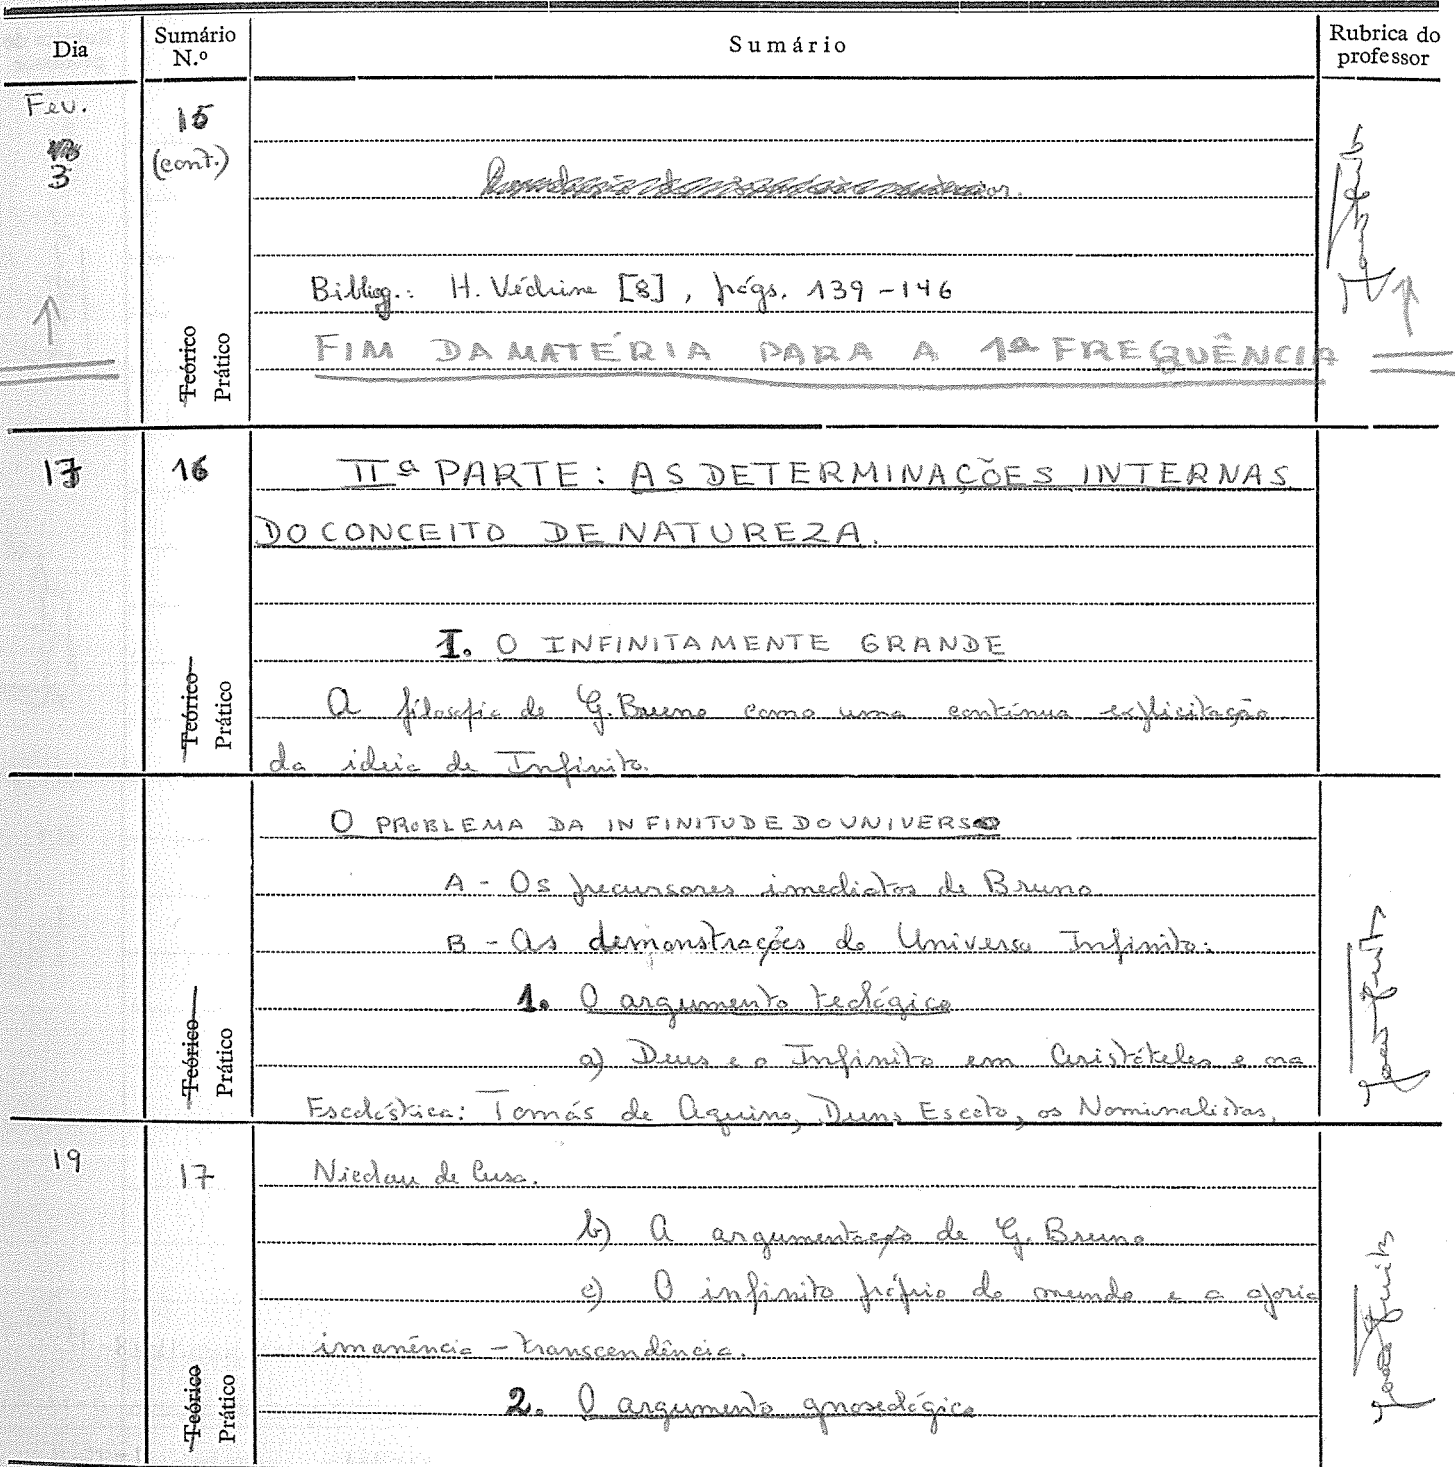 Dia
Sumário N.º
Sumário
Rubrica do professor
Fev.
3
15
(cont.)
Bibliog.: H. Védrine [8], págs. 139-146
FIM DA MATÉRIA PARA A 1ª FREQUÊNCIA
Teórico
Prático
17
16
IIª PARTE: AS DETERMINAÇÕES INTERNAS
DO CONCEITO DE NATUREZA.
I. O INFINITAMENTE GRANDE
A filosofia de G. Bruno como uma contínua explicitação
da ideia de Infinito.
Teórico
Prático
O PROBLEMA DA INFINITUDE DO UNIVERSO
A - Os precursores imediatos de Bruno
B - As demonstrações do Universo Infinito:
1. O argumento teológico
a) Deus e o Infinito em Aristóteles e na
Escolástica: Tomás de Aquino, Duns Escoto, os Nominalistas,
Teórico
Prático
19
17
Nicolau de Cusa.
b) A argumentação de G. Bruno
c) O infinito próprio do mundo e a aporia
imanência - transcendência.
2. O argumento gnoseológico
Teórico
Prático